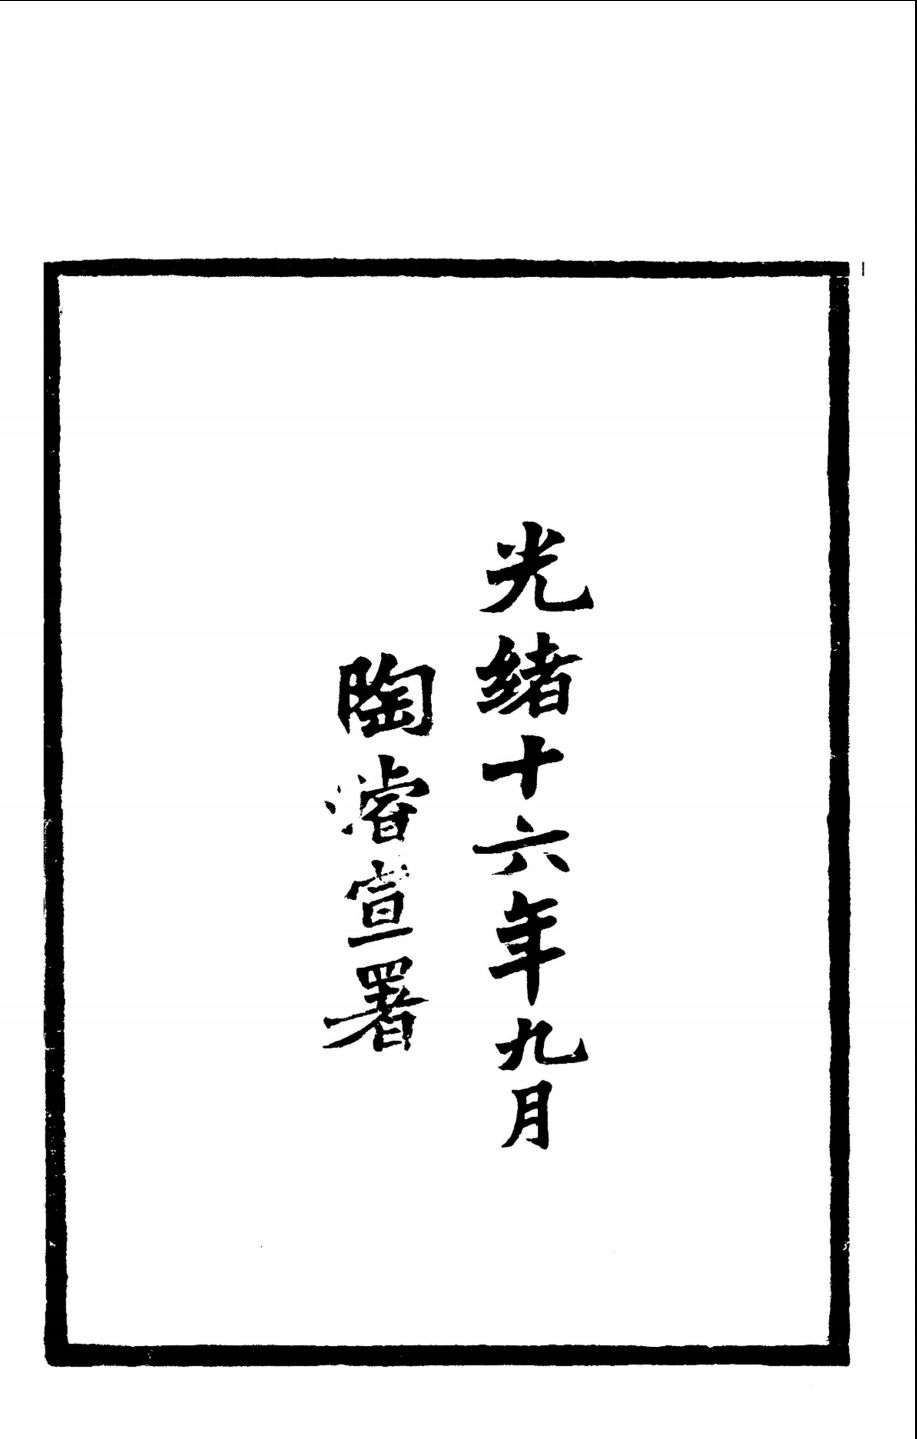 光緒十六年九月
陶濬宣署